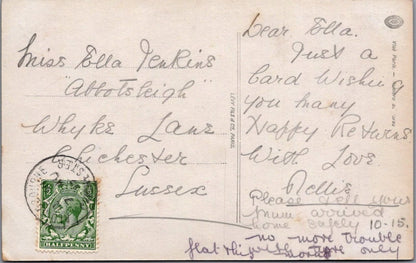 Miss Ella Jenkins
"Abbotsleigh"
Whyke Lane
Chichester
Sussex
LEVY FILS & CO. PARIS.
HALFPENNY
Dear Ella.
Just a
Card Wishing
you many
Happy Returns
With Love
Nellie
Please tell your
mum arrived
home safely 10-15.
no more trouble
only